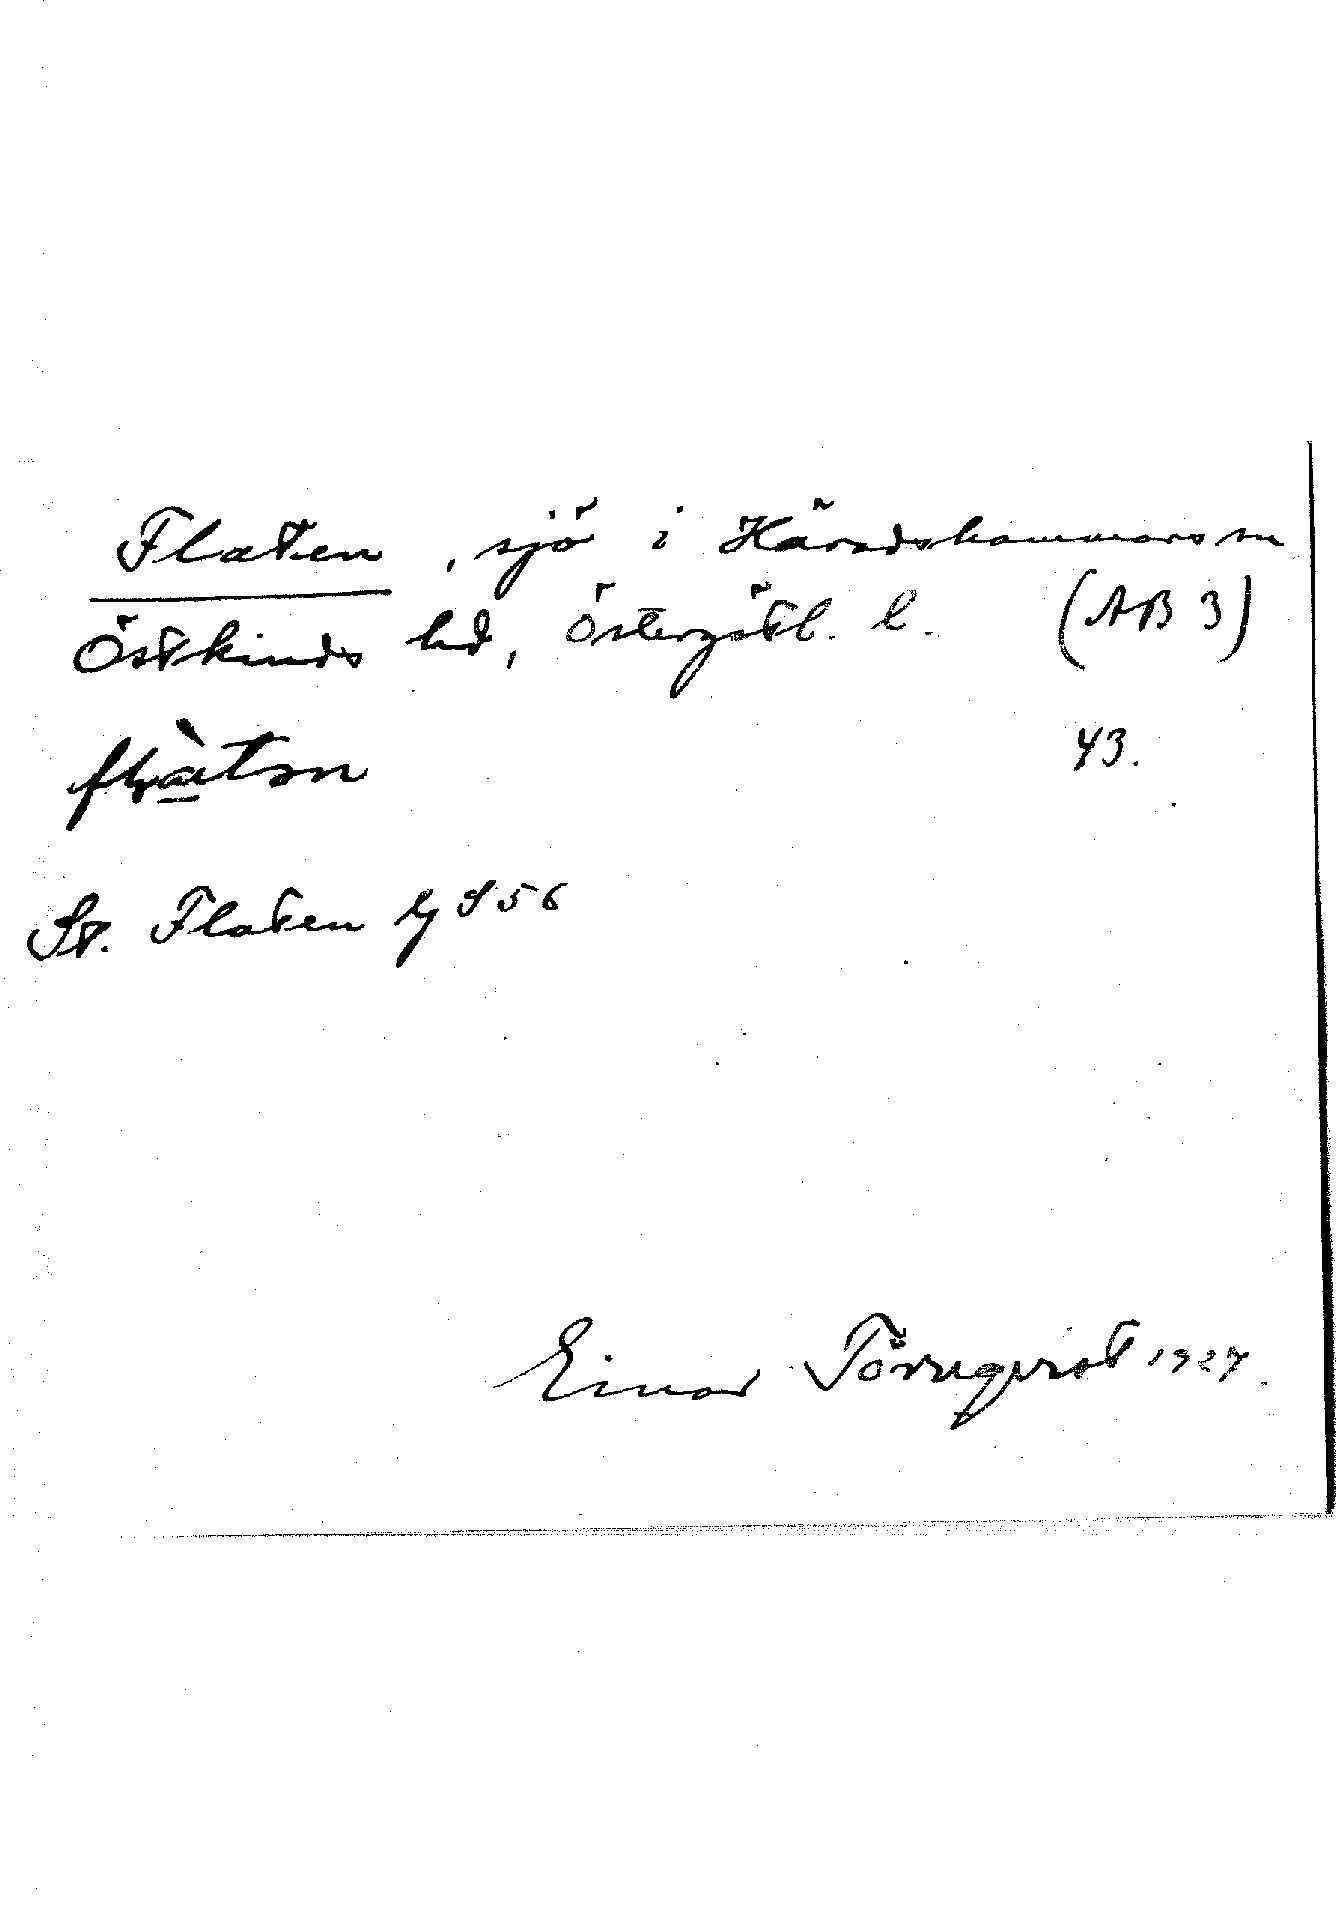 Flaten, sjö i Häradshammars sn
Östkinds hd, Östergötl. l. (AB 3)
43.
St. Flaten Lj S 56
Einar Törnqvist 1927.